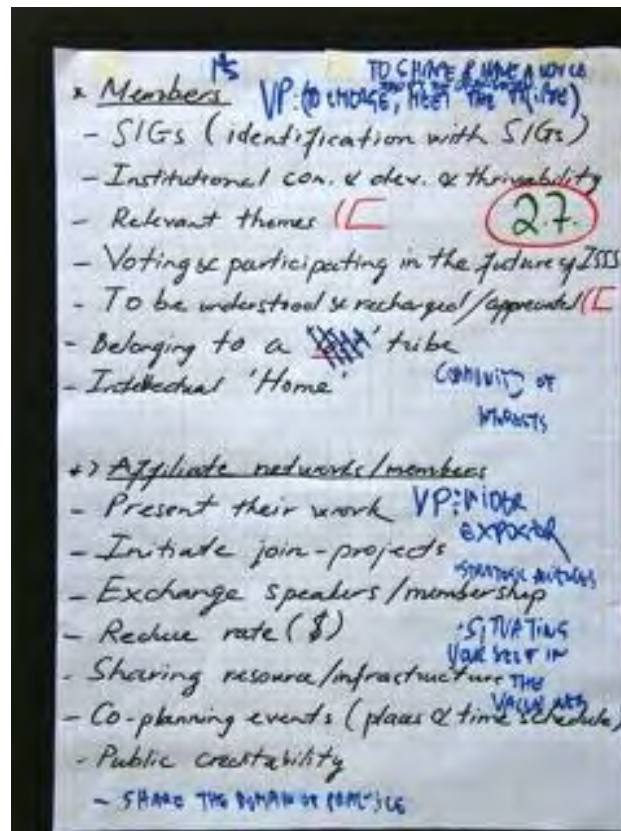 1's
TO SHARE & HAVE A VOICE
* Members VP: (TO EMERGE, MEET THE TRIBE)
- SIGs (identification with SIGs)
- Institutional con. & dev. & thrivability
- Relevant themes
27.
- Voting & participating in the future of ISSS
- To be understood & recharged/appreciated
- Belonging to a ' ' tribe
- Intellectual 'Home'
COMMUNITY OF
INTERESTS
+) Affiliate networks/members
- Present their work VP: WIDER
EXPOSURE
- Initiate join-projects
STRATEGIC
- Exchange speakers/membership
- Reduce rate ($)
- SITUATING
YOURSELF IN
- Sharing resource/infrastructure THE
VALUE WEB
- Co-planning events (places & time schedule)
- Public creditability
- SHARE THE DOMAIN OF PRACTICE